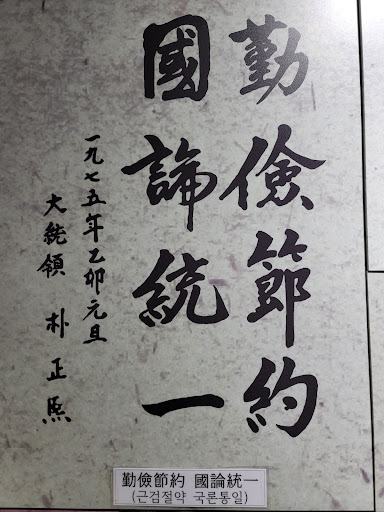 勤儉節約
國論統一
一九七五年乙卯元旦
大統領 朴正熙
勤儉節約 國論統一
(근검절약 국론통일)